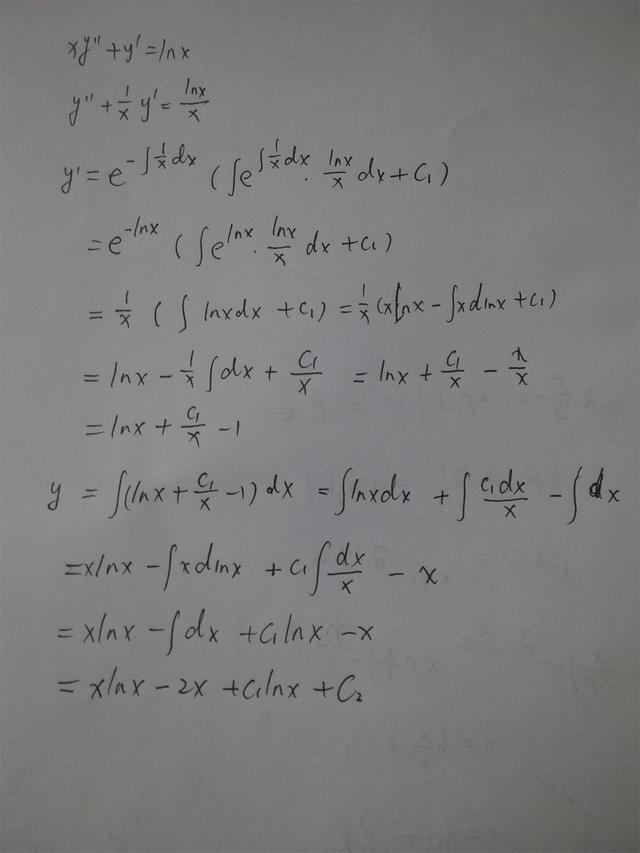 xy'' + y' = lnx
y'' + 1/x y' = lnx/x
y' = e^(-∫1/x dx) (∫e^(∫1/x dx) · lnx/x dx + C₁)
= e^(-lnx) (∫e^(lnx) · lnx/x dx + C₁)
= 1/x (∫ lnxdx + C₁) = 1/x (xlnx - ∫xdlnx + C₁)
= lnx - 1/x ∫dx + C₁/x = lnx + C₁/x - x/x
= lnx + C₁/x - 1
y = ∫(lnx + C₁/x - 1) dx = ∫lnxdx + ∫ C₁dx/x - ∫ dx
= xlnx - ∫xdlnx + C₁∫ dx/x - x
= xlnx - ∫dx + C₁lnx - x
= xlnx - 2x + C₁lnx + C₂